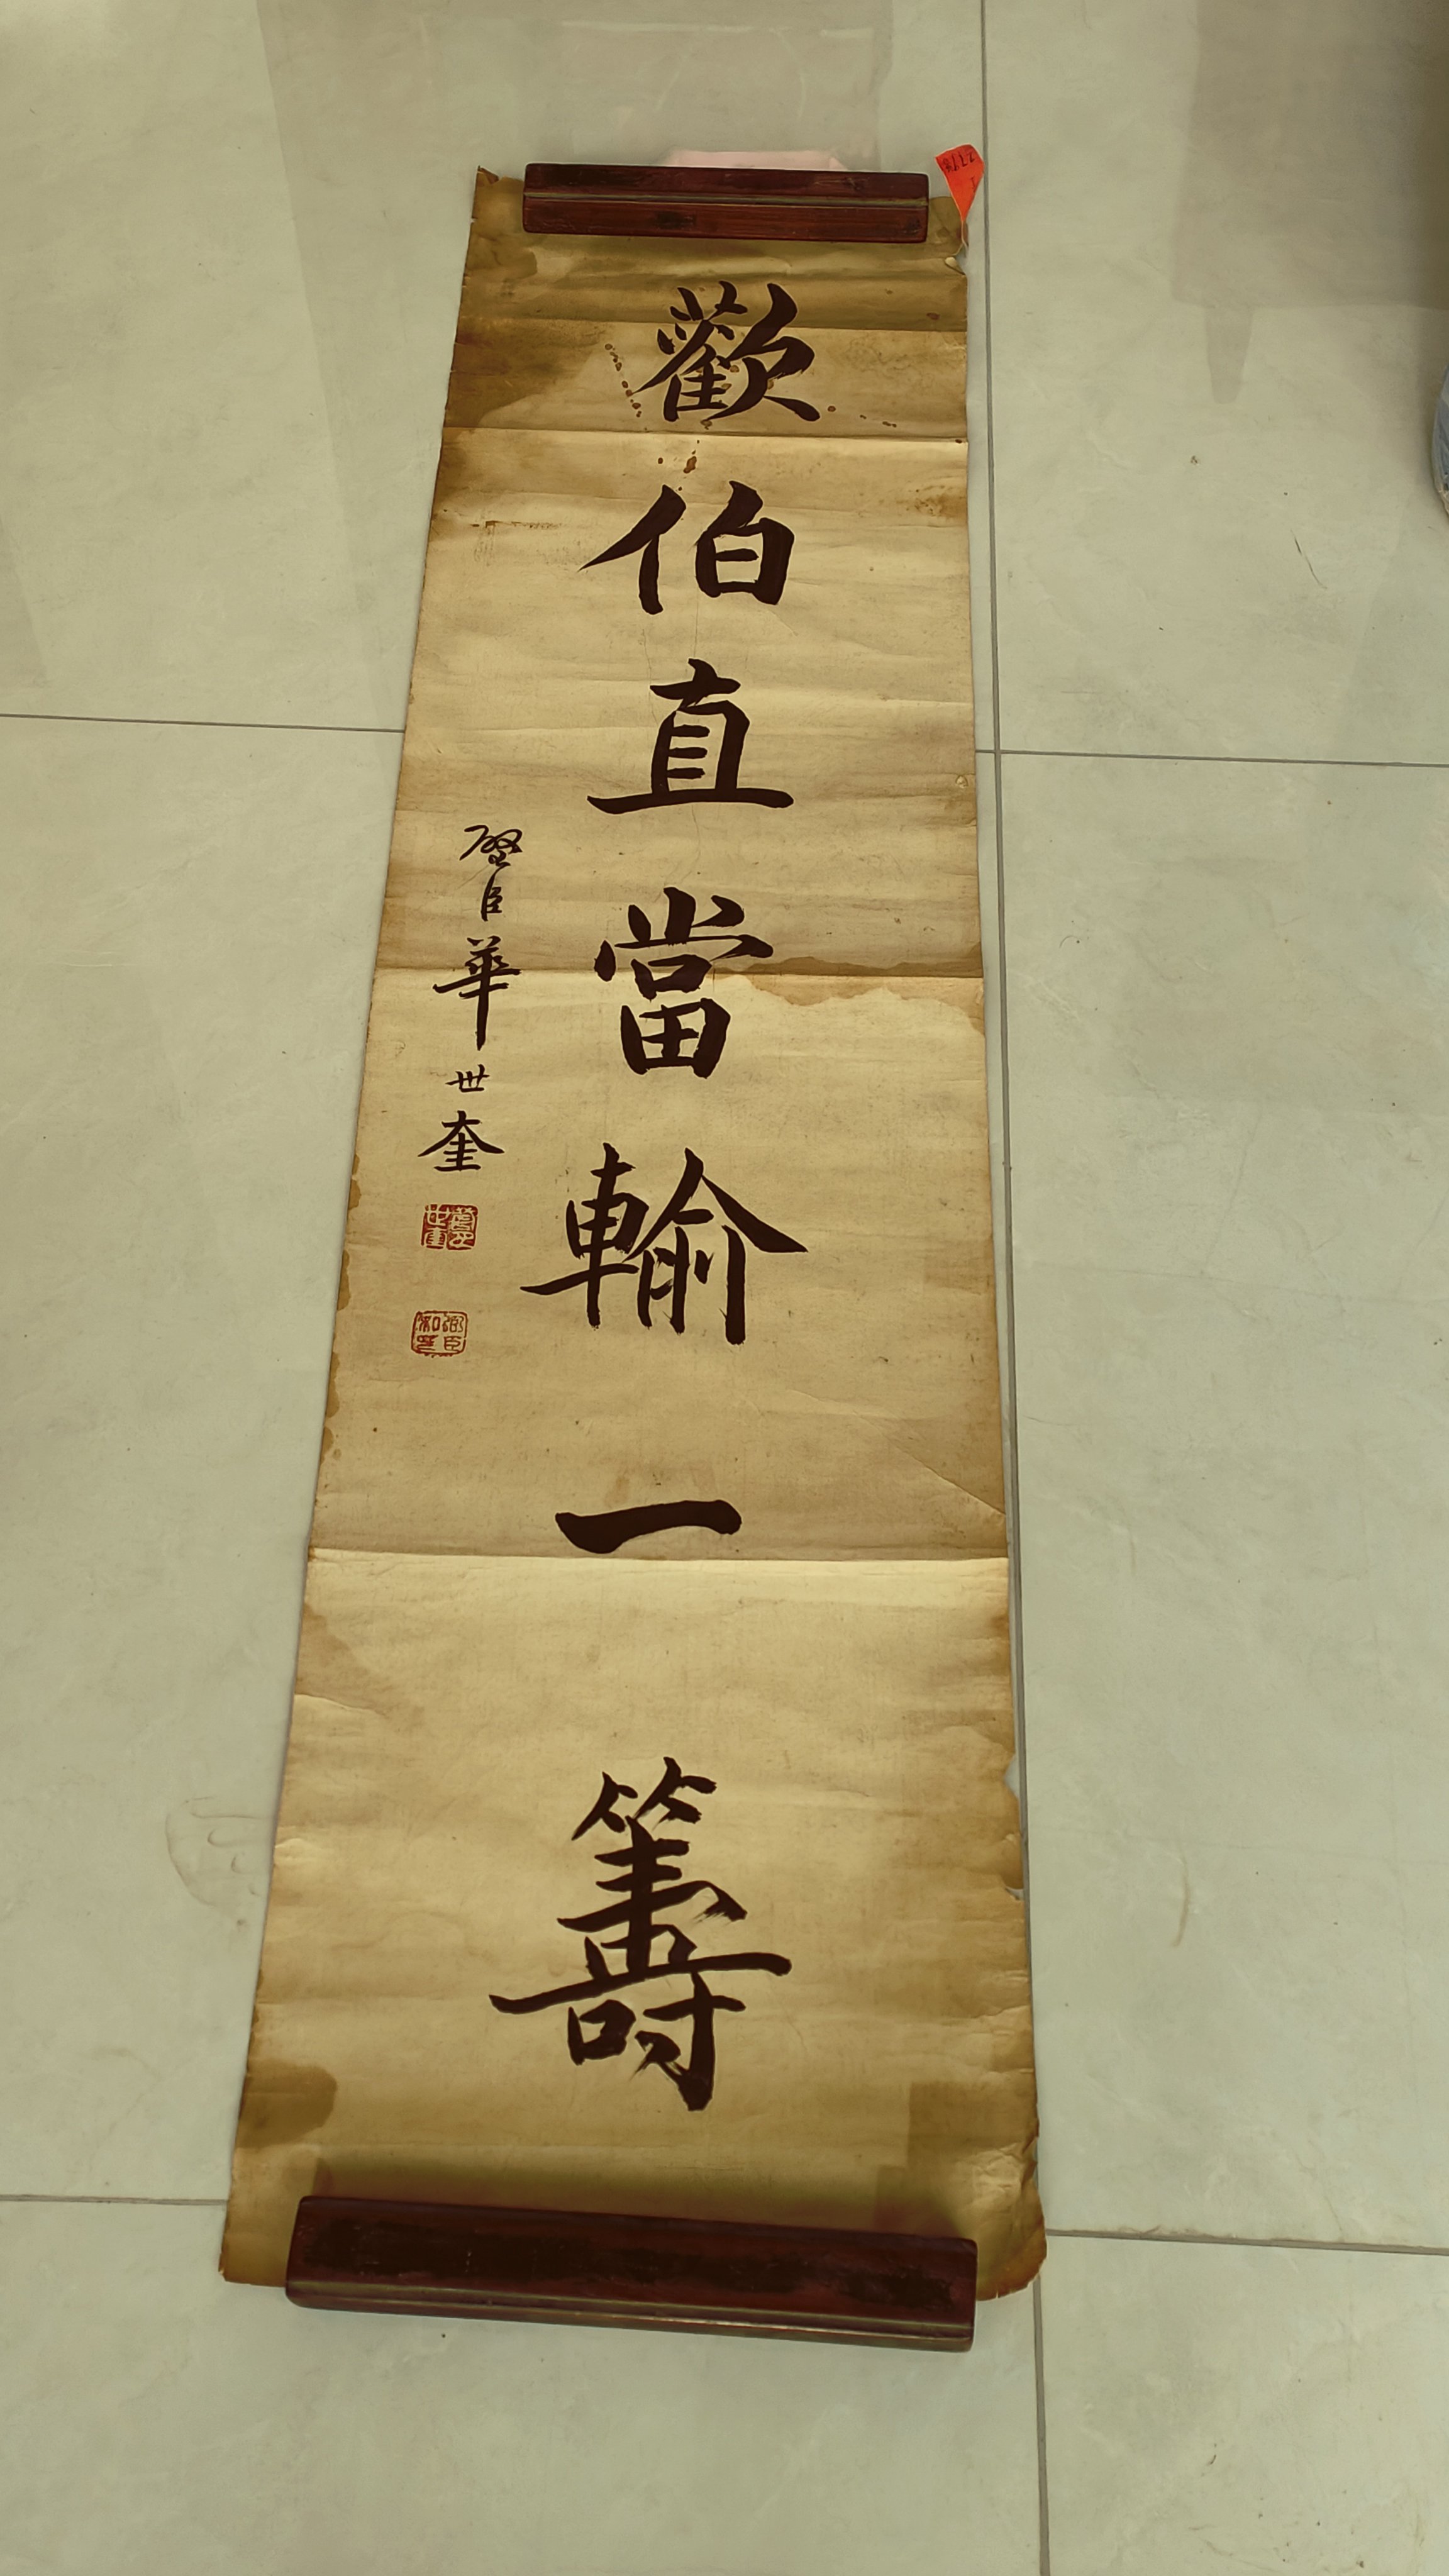 歡伯直當輸一籌
璧臣華世奎